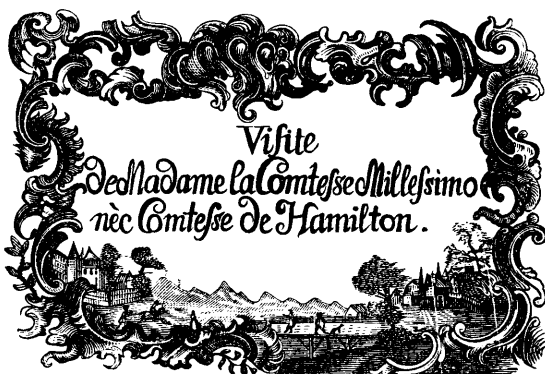 Viſite
de Madame la Comteſse Milleſsimo
nèc Comteſse de Hamilton.